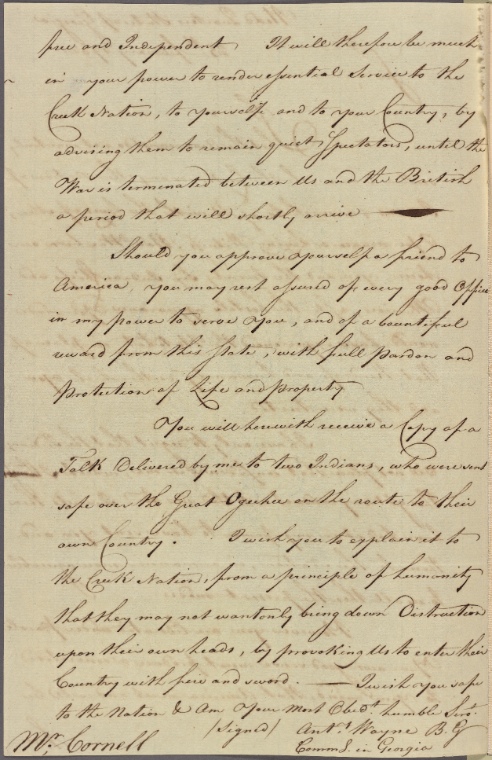 free and Independent, It will therefore be much
in your power to render essential Service to the
Creek Nation, to yourself and to your Country, by
advising them to remain quiet Spectators, until the
War is terminated between Us and the British
a period that will shortly arrive
Should you approve yourself a friend to
America, you may rest assured of every good Office
in my power to serve You, and of a bountiful
reward from this State, with full pardon and
Protection of Life and property
You will herewith receive a Copy of a
Talk Delivered by me to two Indians, who were sent
safe over the Great Ogechee on the route to their
own Country. I wish you to explain it to
the Creek Nation, from a principle of humanity
that they may not wantonly bring down Distruction
upon their own heads, by provoking Us to enter their
Country with fire and sword. — I wish you safe
to the Nation & Am Your Most Obedt humble Servt
(Signed) Anty Wayne B. G
Mr. Cornell Commg. in Georgia